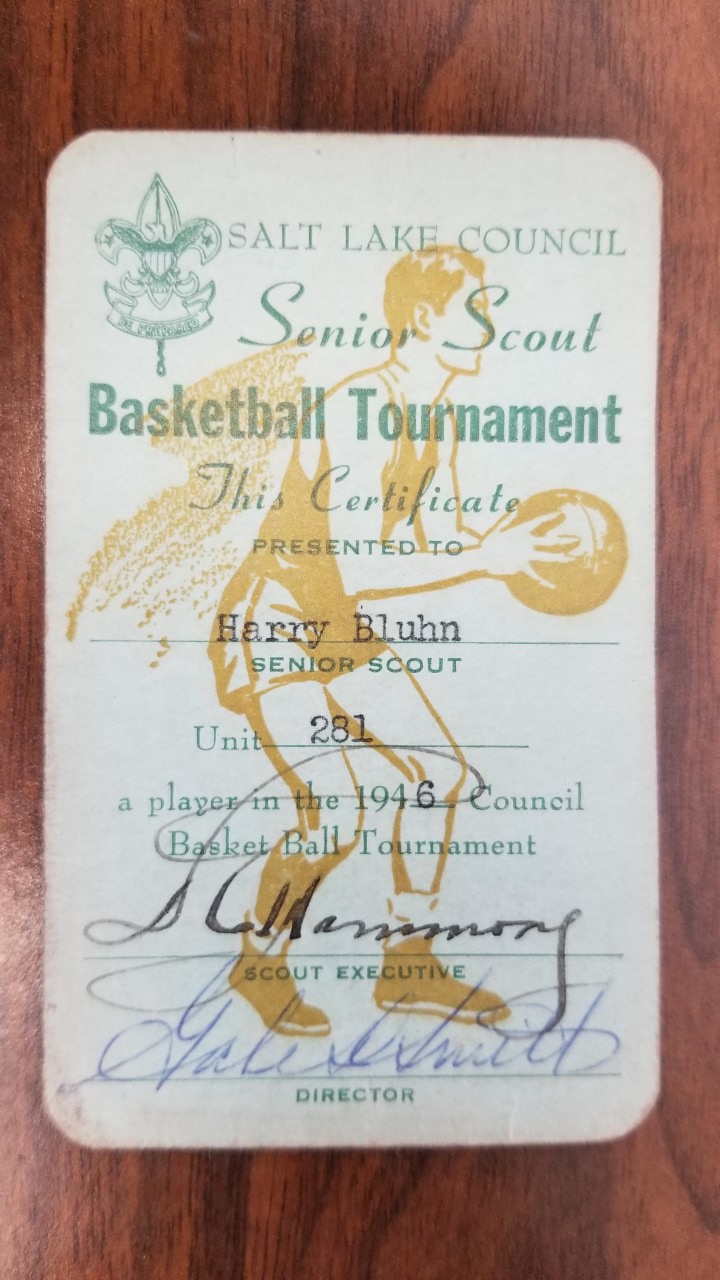 SALT LAKE COUNCIL
BE PREPARED
Senior Scout
Basketball Tournament
This Certificate
PRESENTED TO
Harry Bluhn
SENIOR SCOUT
Unit 281
a player in the 1946 Council
Basket Ball Tournament
Hammond
SCOUT EXECUTIVE
Gale
DIRECTOR